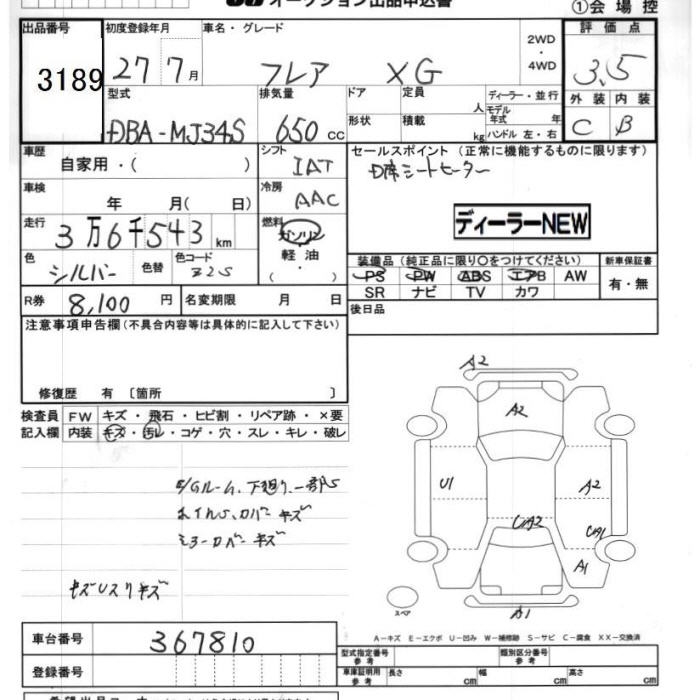 オークション出品申込書
①会場控
出品番号
3189
初度登録年月
27 7月
車名・グレード
フレア XG
2WD・4WD
評価点
3.5
型式
DBA-MJ34S
排気量
650 cc
ドア
形状
定員 人
積載 kg
ディーラー・並行
モデル年式 年
ハンドル 左・右
外装 内装
C B
車歴
自家用・( )
シフト
IAT
セールスポイント (正常に機能するものに限ります)
D席シートヒーター
車検
年 月( 日)
冷房
AAC
ディーラーNEW
走行
3万6千543 km
燃料
ガソリン
軽油
( )
色
シルバー
色替
色コード
Z2S
装備品 (純正品に限り○をつけてください)
新車保証書
PS PW ABS エアB AW
SR ナビ TV カワ
有・無
R券
8,100 円
名変期限 月 日
後日品
注意事項申告欄 (不具合内容等は具体的に記入して下さい)
修復歴 有 〔箇所 〕
検査員記入欄
FW キズ・飛石・ヒビ割・リペア跡・×要
内装 キズ・汚レ・コゲ・穴・スレ・キレ・破レ
E/Gルーム、下廻り一部S
ホイルS、カバーキズ
ミラーカバーキズ
A2
A2
U1
A2
A1
A1
スペア
A-キズ E-エクボ U-凹み W-補修跡 S-サビ C-腐食 XX-交換済
車台番号
367810
登録番号
型式指定番号 参考
類別区分番号 参考
車庫証明用 参考
長さ cm 幅 cm 高さ cm
希望出品コーナー